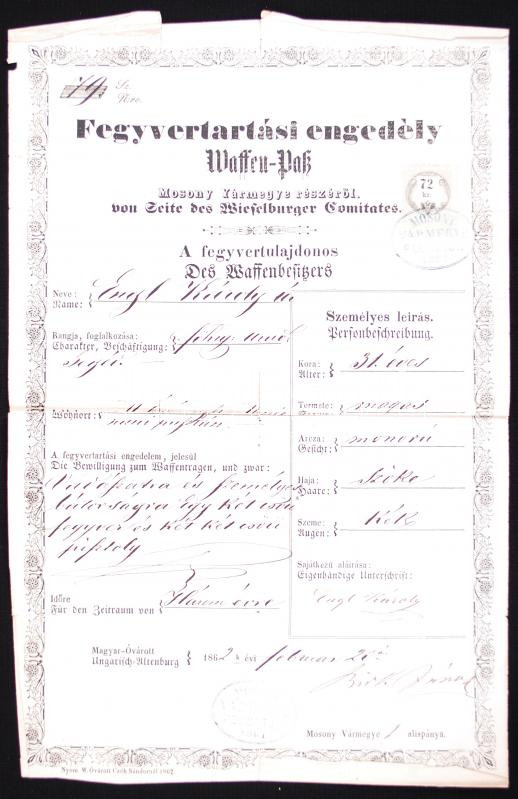 79 Sz.
Nro.
Fegyvertartási engedély
Waffen-Paß
Mosony Vármegye részéről.
von Seite des Wieselburger Comitates.
72
kr.
MOSONY
A fegyvertulajdonos
Des Waffenbesitzers
Neve:
Name:
Engl Károly
Rangja, foglalkozása:
Charakter, Beschäftigung:
Wohnort:
A fegyvertartási engedelem, jelesül
Die Bewilligung zum Waffentragen, und zwar:
Vadászatra és személyes
bátorságra egy két csövű
fegyver és két két csövű
pisztoly
Időre
Für den Zeitraum von
Három évre
Személyes leirás.
Personbeschreibung.
Kora:
Alter:
31. éves
Termete:
magas
Arcza:
Gesicht:
Haja:
Haare:
szőke
Szeme:
Augen:
kék
Sajátkezű aláirása:
Eigenhändige Unterschrift:
Engl Károly
Magyar-Óvárott
Ungarisch-Altenburg
1862 évi februar
Mosony Vármegye 1 alispánya.
Nyom. M. Óvárott Czéh Sándornál 1862.